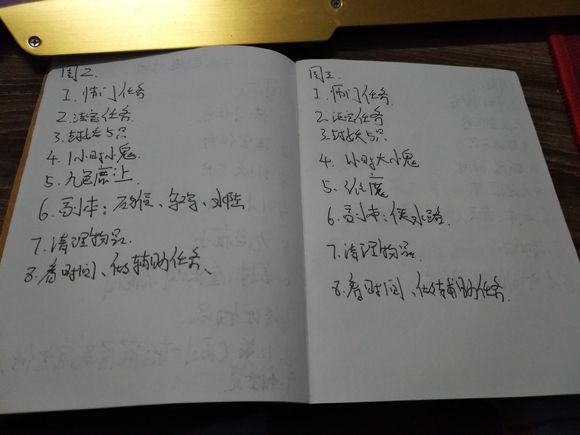 周二.
1. 师门任务
2. 法宝任务.
3. 封妖5只
4. 1小时小鬼.
5. 九色鹿上
6. 副本:
7. 清理物品.
8. 看时间、做辅助任务、
周三.
1. 师门任务.
2. 法宝任务.
3. 封妖5只
4. 1小时大小鬼
5.
6. 副本: 侠
7. 清理物品.
8. 看时间、做辅助任务.